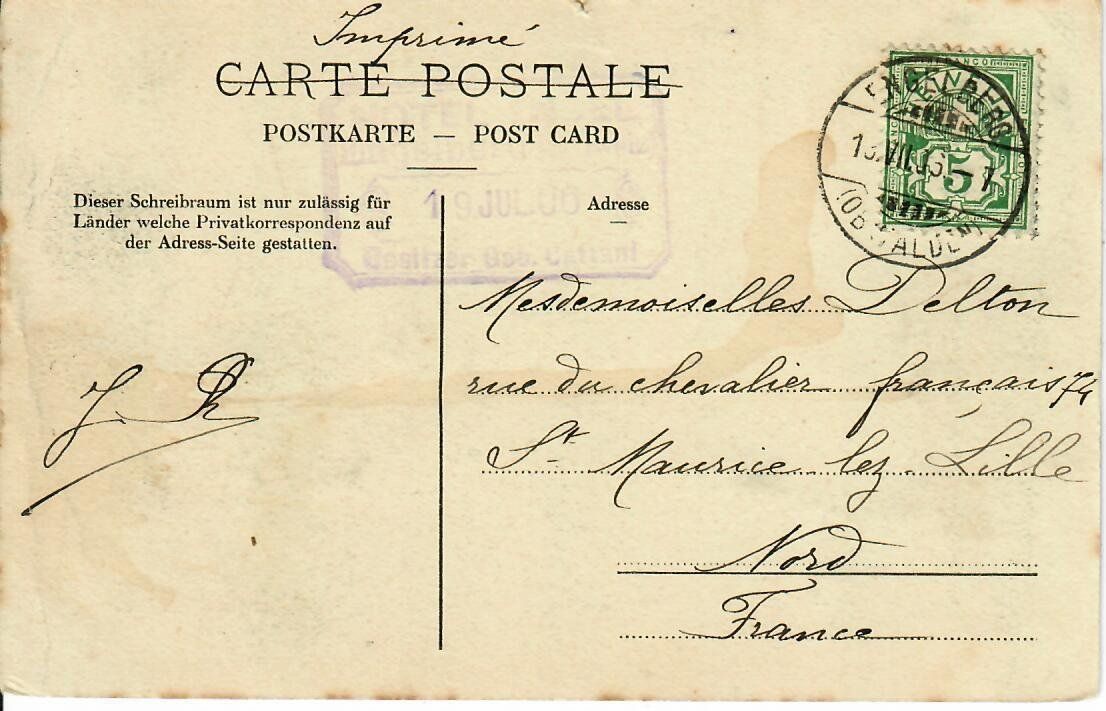 Imprimé
CARTE POSTALE
POSTKARTE — POST CARD
FRANCO
5
19 JUL 06
Besitzer Geb. Cattani
Dieser Schreibraum ist nur zulässig für
Länder welche Privatkorrespondenz auf
der Adress-Seite gestatten.
Adresse
Mesdemoiselles Delton
rue du chevalier français 74
St Maurice lez Lille
Nord
France